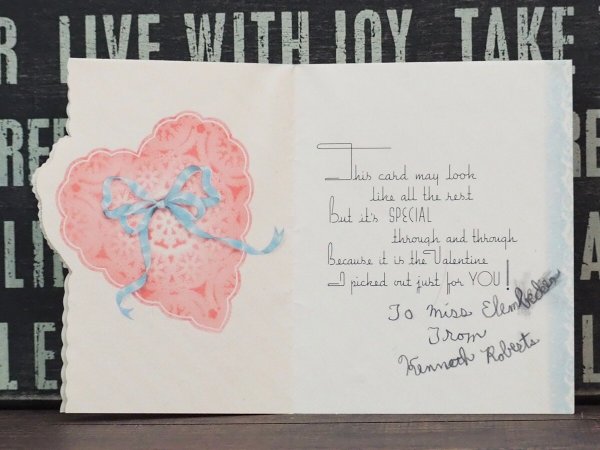 R LIVE WITH JOY TAKE
This card may look
like all the rest
But it's SPECIAL
through and through
Because it is the Valentine
I picked out just for YOU!
To Miss
From
Kenneth Roberts